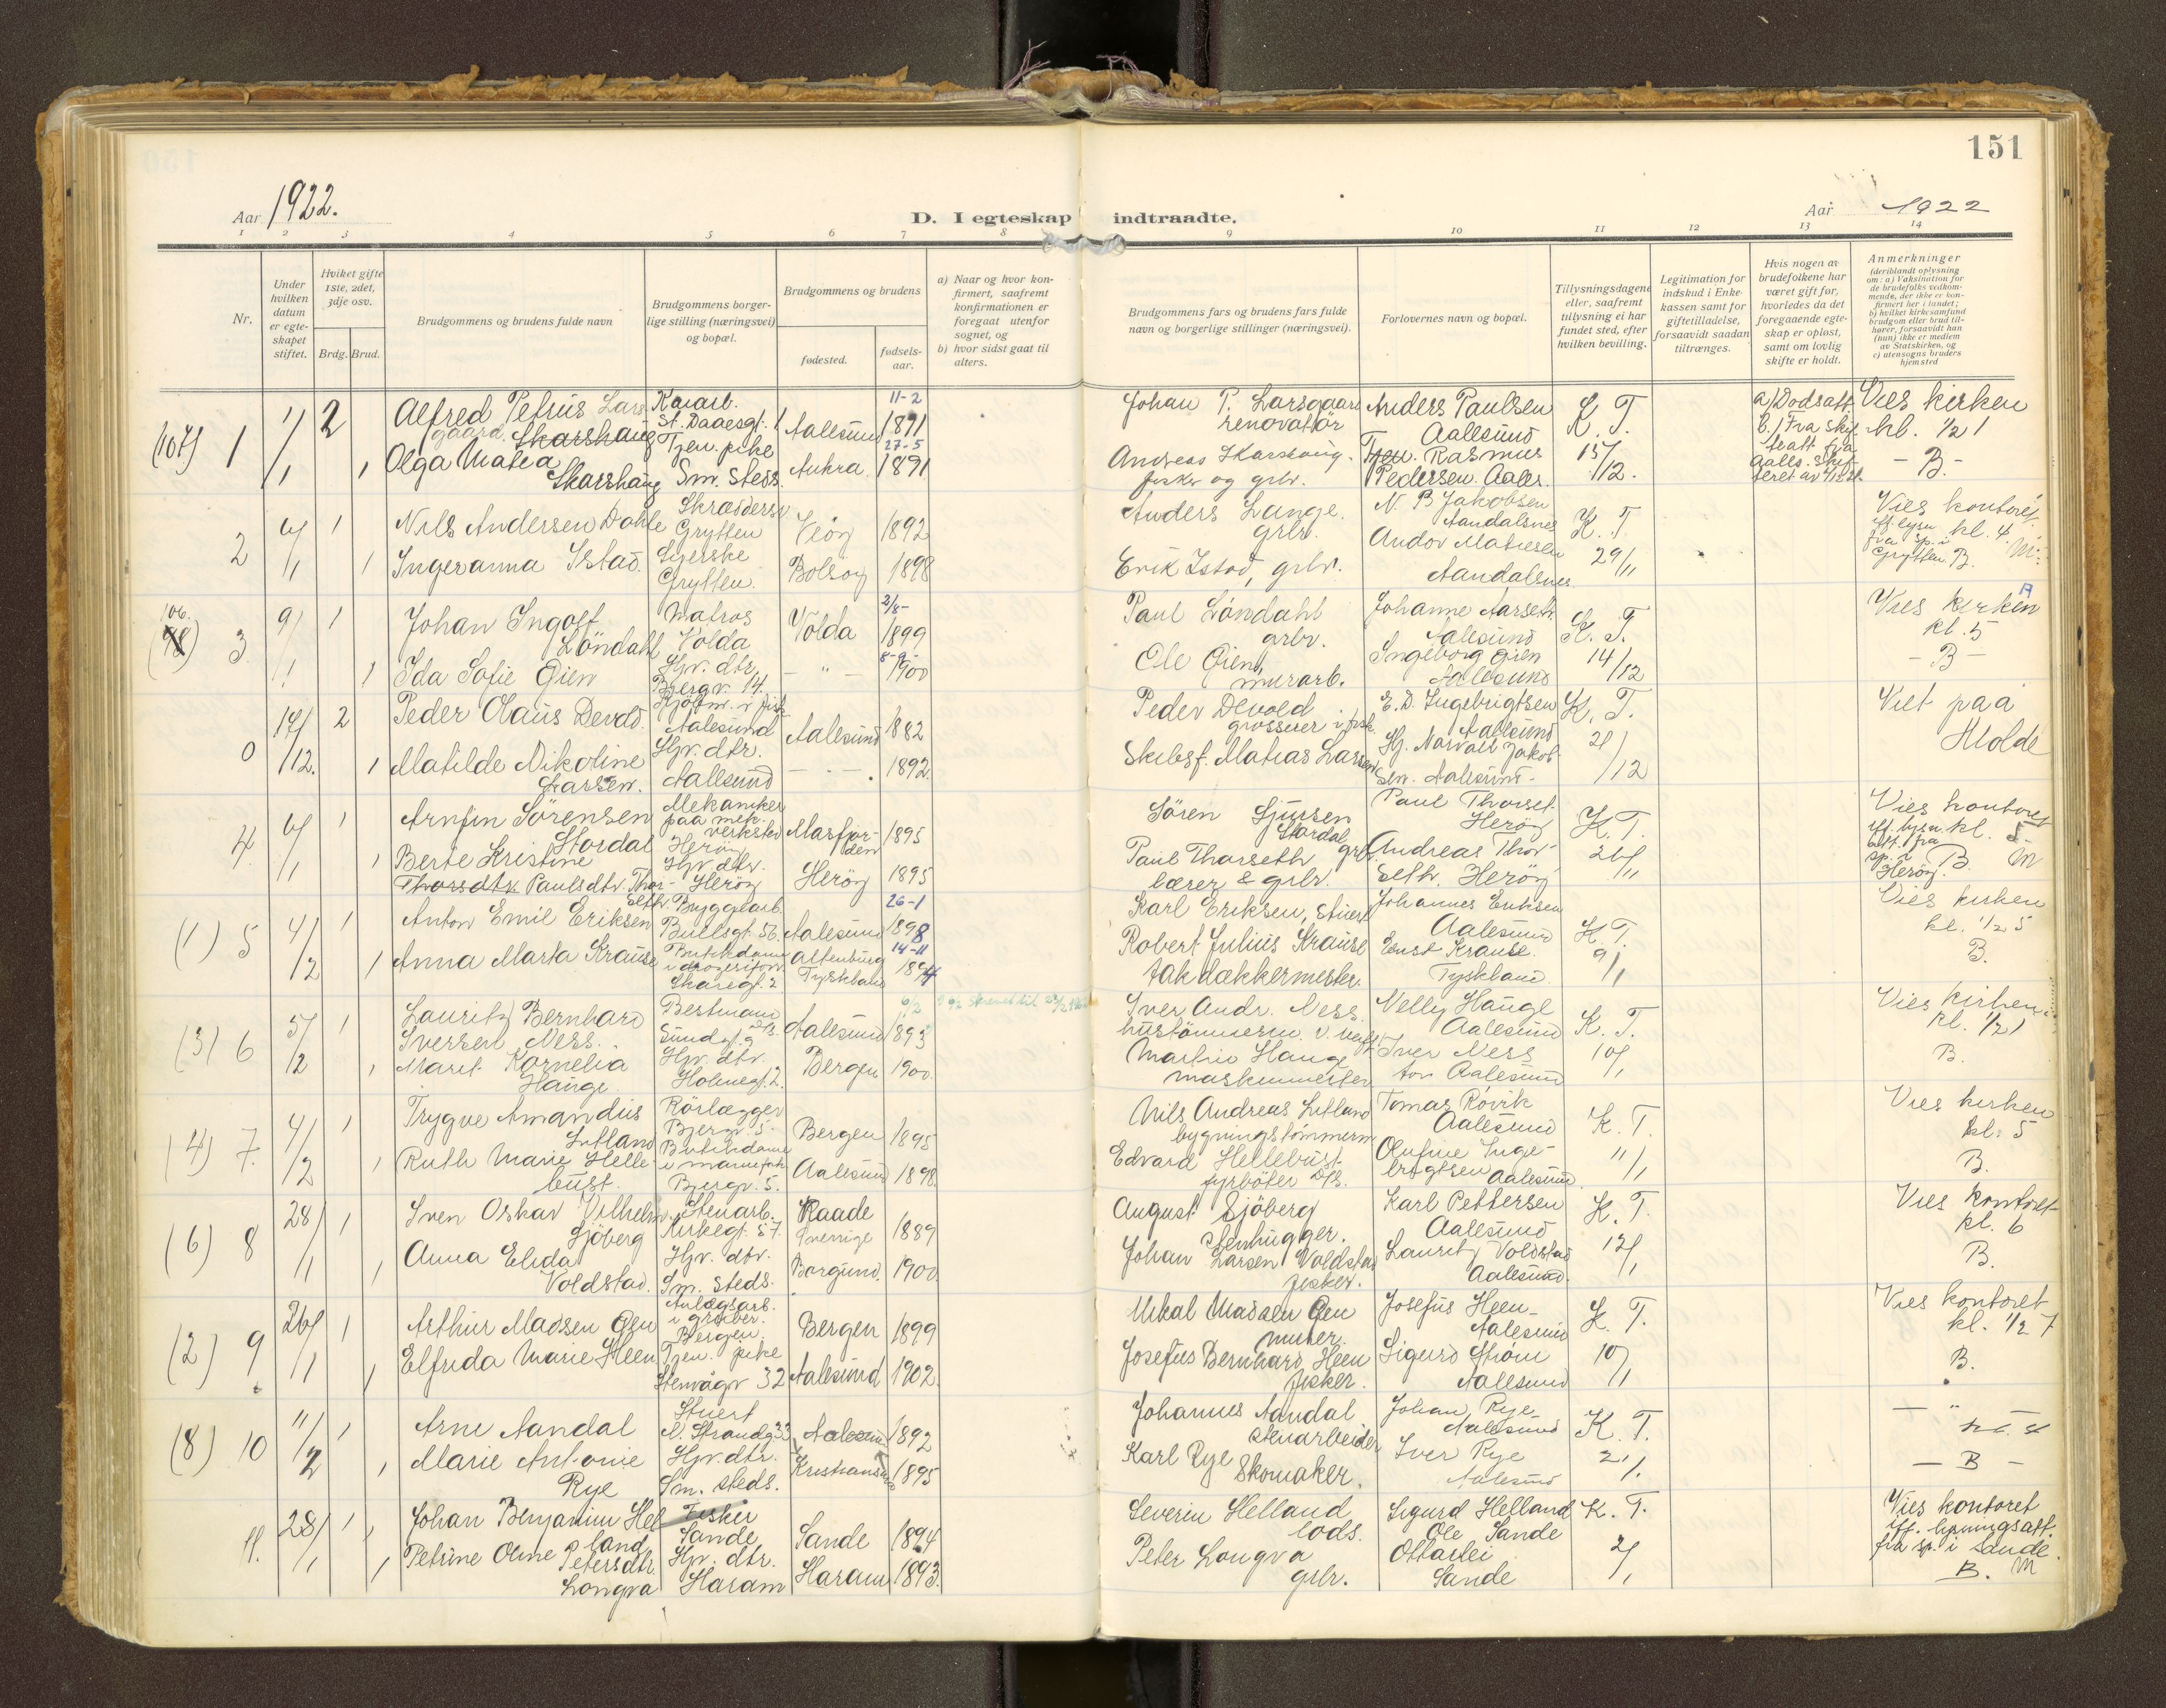 151
Aar 1922.
D. I egteskap indtraadte.
Aar 1922
1 2 3 4 5 6 7 8 9 10 11 12 13 14
Nr.
Under hvilken datum er egteskapet stiftet.
Hviket gifte 1ste, 2det, 3dje osv.
Brdg. Brud.
Brudgommens og brudens fulde navn
Brudgommens borgerlige stilling (næringsvei) og bopæl.
Brudgommens og brudens
fødested.
fødselsaar.
a) Naar og hvor konfirmert, saafremt konfirmationen er foregaat utenfor sognet, og
b) hvor sidst gaat til alters.
Brudgommens fars og brudens fars fulde navn og borgerlige stillinger (næringsvei).
Forlovernes navn og bopæl.
Tillysningsdagene eller, saafremt tillysning ei har fundet sted, efter hvilken bevilling.
Legitimation for indskud i Enkekassen samt for giftetilladelse, forsaavidt saadan tiltrænges.
Hvis nogen av brudefolkene har været gift før, hvorledes da det foregaaende egteskap er opløst, samt om lovlig skifte er holdt.
Anmerkninger
(deriblandt oplysning om: a) Vaksination for de brudefolks vedkommende, der ikke er konfirmert her i landet; b) hvilket kirkesamfund brudgom eller brud tilhører, forsaavidt han (hun) ikke er medlem av Statskirken, og c) utensogns bruders hjemsted
(107) 1 1/1 2 Alfred Petrus Larsgaard Kaiarb. St. Daaesgt. 1 Aalesund 11-2 1891 Johan P. Larsgaard renovatør Anders Paulsen Aalesund K. T. a) Dodsatt. Vies kirken kl. 1/2 1
1 Olga Matea Skarshaug Tjen. pike Sm. steds. Aukra 27-5 1891 Andreas Skarshaug fisker og grbr. Rasmus Pedersen Aales. 15/12. -B-
2 6/1 1 Nils Andersen Dahle Skrædders Grytten Veøy 1892 Anders Lange grbr. N. B Jakobsen Aandalsnes K. T. Vies kontoret kl. 4
1 Ingeranna Istad Syerske Grytten Bolsøy 1898 Erik Istad, grbr. Andor Matiesen Aandalsnes 29/11 Grytten B. M.
106. 3 9/1 1 Johan Ingolf Löndahl Matros Volda Volda 2/8- 1899 Paul Löndahl grbr. Johanne Aarseth Aalesund K. T. Vies kirken kl. 5
1 Ida Sofie Øien Hpv. dtr. Bjergv. 14. - " - 8-9- 1900 Ole Øien, murarb. Ingeborg Øien Aalesund 14/12 -B-
0 17/12. 2 Peder Olaus Devold Aalesund Aalesund 1882 Peder Devold grosserer Aalesund E. D. Ingebrigtsen K. T. Viet paa Molde
1 Matilde Nikoline Larsen. Hpv. dtr. Aalesund 1892. Skibsf. Matias Larsen Hj. Narvall Jakobsen. Aalesund 2/12
4. 6/1 1 Arnfin Sörensen Stordal Mekaniker paa mek. verksted Herøy 1895 Sören Sjursen Stordal grbr. Paul Thorset Herøy K. T. Vies kontoret kl. 5
1 Berte Kristine Paulsdtr. Thorseth. Hpv. dtr. Herøy Herøy 1895 Paul Thorseth lærer & grbr. Andreas Thorseth. Herøy 26/11 Herøy. B. M
(1) 5 4/2 1 Anton Emil Eriksen Byggearb. Bullsgt. 56. Aalesund 26-1 1898 Karl Eriksen, stuert Johannes Eriksen Aalesund K. T. Vies kirken kl. 1/2 5
1 Anna Marta Krause Butikdame Skaregt. 2 Altenburg Tyskland 14-11 1894 Robert Julius Krause takdækkermester. Ernst Krause. Tyskland 9/1 B.
(3) 6 5/2 1 Lauritz Bernhard Iversen Ness. Bestmand Sundgt. 9 Aalesund 6/2 1893 Iver Andr. Ness. Nelly Hauge Aalesund K. T. Vies kirken kl. 1/2 1
1 Maret Kornelia Hauge Hpv. dtr. Holmegt. 2. Bergen 1900. Martin Hauge maskinmester Iver Ness Aalesund 10/1 B.
(4) 7. 4/2 1 Trygve Amandus Litland Rörlægger Bjergv. 5. Bergen 1895 Nils Andreas Litland bygningstömmerm. Tomas Rövik Aalesund K. T. Vies kirken kl. 5
1 Ruth Marie Hellebust. Butikdame Bjergv. 5. Aalesund 1898. Edvard Hellebust fyrböter D/S. Olufine Ingebrigtsen Aalesund 11/1 B.
(6) 8 28/1 1 Sven Oskar Vilhelm Sjöberg Stenarb. Kirkegt. 57. Raade Sverrige 1889 August Sjöberg stenhugger. Karl Pettersen Aalesund K. T. Vies kontoret kl. 6
1 Anna Elida Voldstad. Hpv. dtr. Sm. steds. Borgund. 1900. Johan Larsen Voldstad fisker. Lauritz Voldstad Aalesund. 12/1 B.
(2) 9 26/1 1 Arthur Madsen Gen Anlægsarb. Bergen. Bergen 1899 Mikal Madsen Gen murer. Josefus Heen Aalesund K. T. Vies kontoret kl. 1/2 7
1 Elfrida Marie Heen Tjen. pike Stenvågv 32 Aalesund 1902. Josefus Bernhard Heen fisker. Sigurd Strøm Aalesund 10/1 B.
(8) 10 11/2 1 Arne Aandal Stuert N. Strandg. 33 Aalesund 1892 Johannes Aandal stenarbeider Johan Rye Aalesund K. T. - " -
1 Marie Antonie Rye Hpv. dtr. Sm. steds. Kristiansund 1895 Karl Rye Skomaker. Iver Rye Aalesund 21/1. -B-
11. 28/1 1 Johan Benjamin Helland Fisker Sande Sande 1894 Severin Helland lods. Sigurd Helland Ole Sande K. T. Vies kontoret iflf. lysningsatt. fra sp. i Sande.
1 Petrine Oline Petersdtr. Longva Hpv. dtr. Haram Haram 1893. Peter Longva grbr. Ottarlei Sande 2/1 B. M